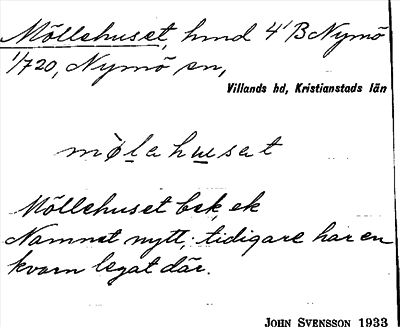 Möllehuset, hmd 4¹ B Nymö
1/720, Nymö sn,
Villands hd, Kristianstads län
mø̀lahusat
Möllehuset bek, ek
Namnet nytt; tidigare har en
kvarn legat där.
JOHN SVENSSON 1933